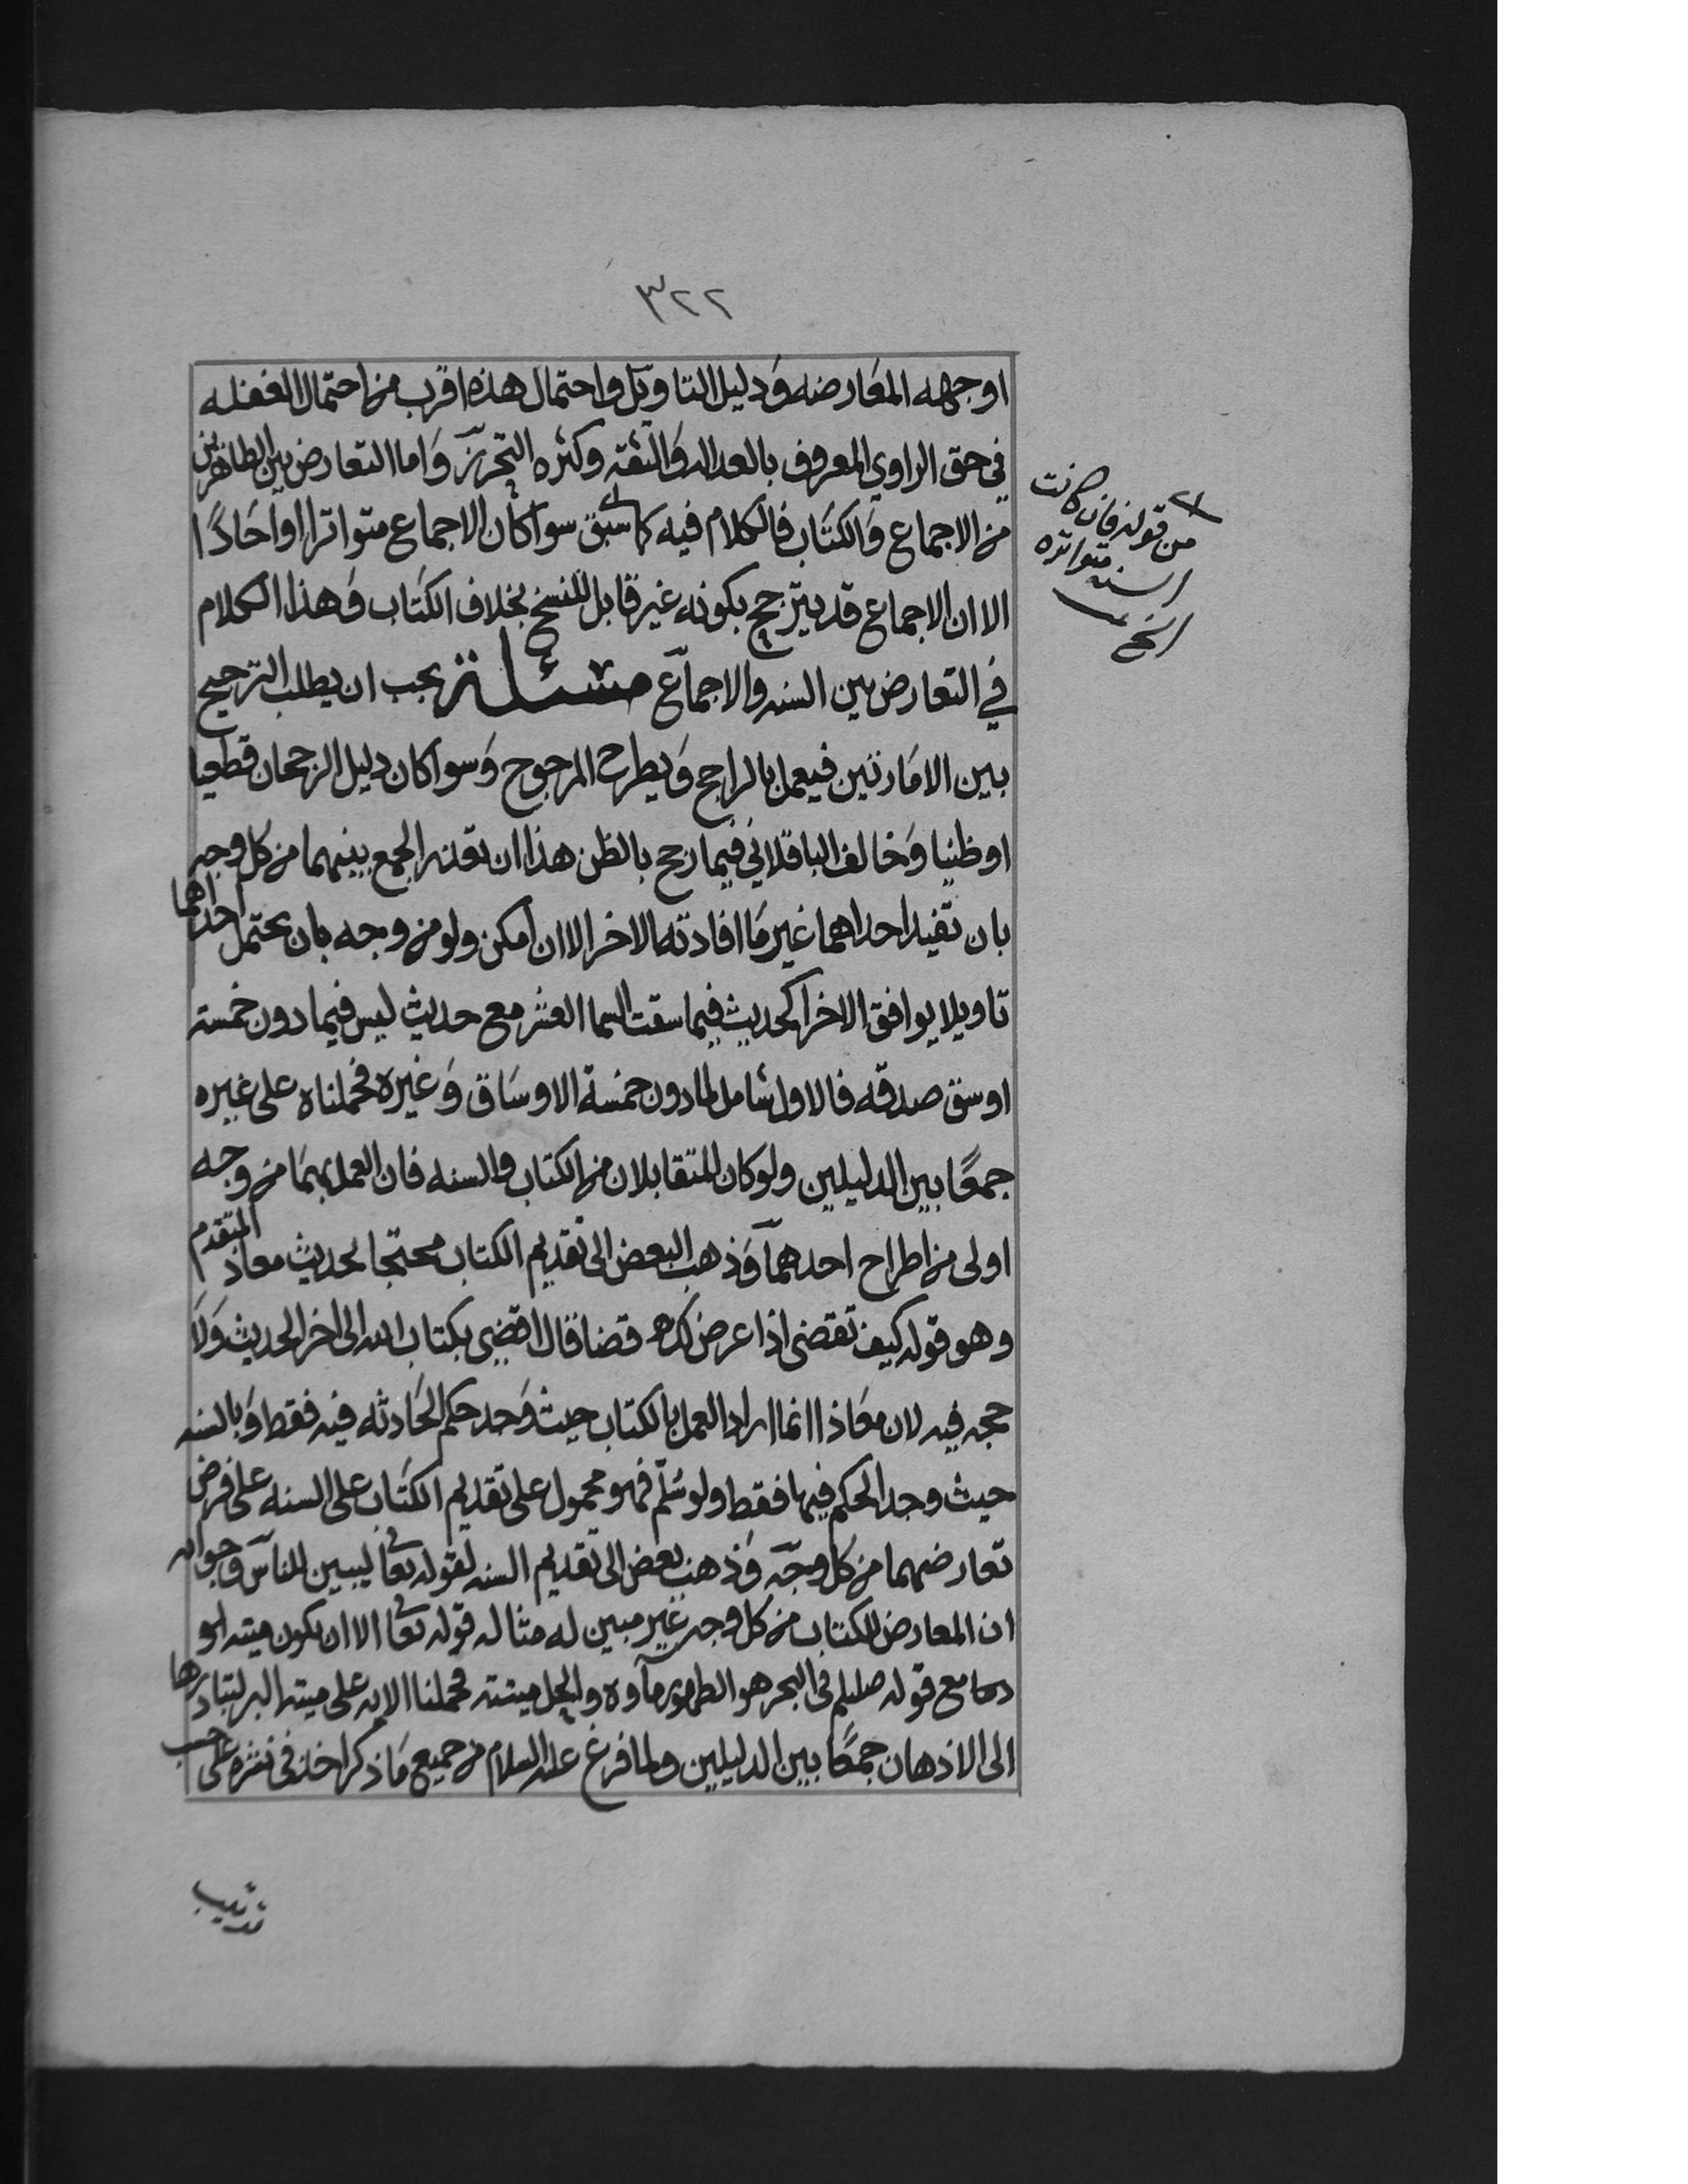 ٣٢٢
اوجهه المعارضه ودليل التاويل واحتمال هذه اقرب من احتمال الغفله
في حق الراوي المعروف بالعداله والثقه وكثره التحرز واما التعارض بين الظاهرين
من الاجماع والكتاب فالكلام فيه كما سبق سوا كان الاجماع متواترا او احادًا
الا ان الاجماع قد يترجح بكونه غير قابل للنسخ بخلاف الكتاب وهذا الكلام
في التعارض بين السنه والاجماع مسئلة يجب ان يطلب الترجيح
بين الامارتين فيعمل بالراجح ويطرح المرجوح وسوا كان دليل الرجحان قطعيا
او ظنيا وخالف الباقلاني فيما رجح بالظن هذا ان تعذر الجمع بينهما من كل وجه
بان تفيد احداهما غير ما افادته الاخر الا ان امكن ولو من وجه بان يحتمل احداهما
تاويلا يوافق الاخرا كحديث فيما سقت السما العشر مع حديث ليس فيما دون خمسة
اوسق صدقه فالاول شامل لما دون خمسة الاوساق وغيره فحملناه على غيره
جمعًا بين الدليلين ولو كان المتقابلان من الكتاب والسنه فان العمل بهما من وجه
اولى من اطراح احدهما وذهب البعض الى تقديم الكتاب محتجا بحديث معاذ المتقدم
وهو قوله كيف تقضي اذا عرض لك قضا قال اقضي بكتاب الله الى اخر الحديث ولا
حجه فيه لان معاذا انما اراد العمل بالكتاب حيث وجد حكم الحادثه فيه فقط وبالسنه
حيث وجد الحكم فيها فقط ولو سلم فهو محمول على تقديم الكتاب على السنه على فرض
تعارضهما من كل وجه وذهب بعض الى تقديم السنه لقوله تعالى ليبين للناس وجوابه
ان المعارض للكتاب من كل وجه غير مبين له مثاله قوله تعالى الا ان يكون ميته او
دما مع قوله صللم في البحر هو الطهور ماوه والحل ميتته فحملنا الايه على ميتة البر لتبادرها
الى الاذهان جمعًا بين الدليلين ولما فرغ عليه السلام من جميع ما ذكر اخذ في نشره على حسب
من قوله فان كانت
السنه متواتره
الخ
ترتيب